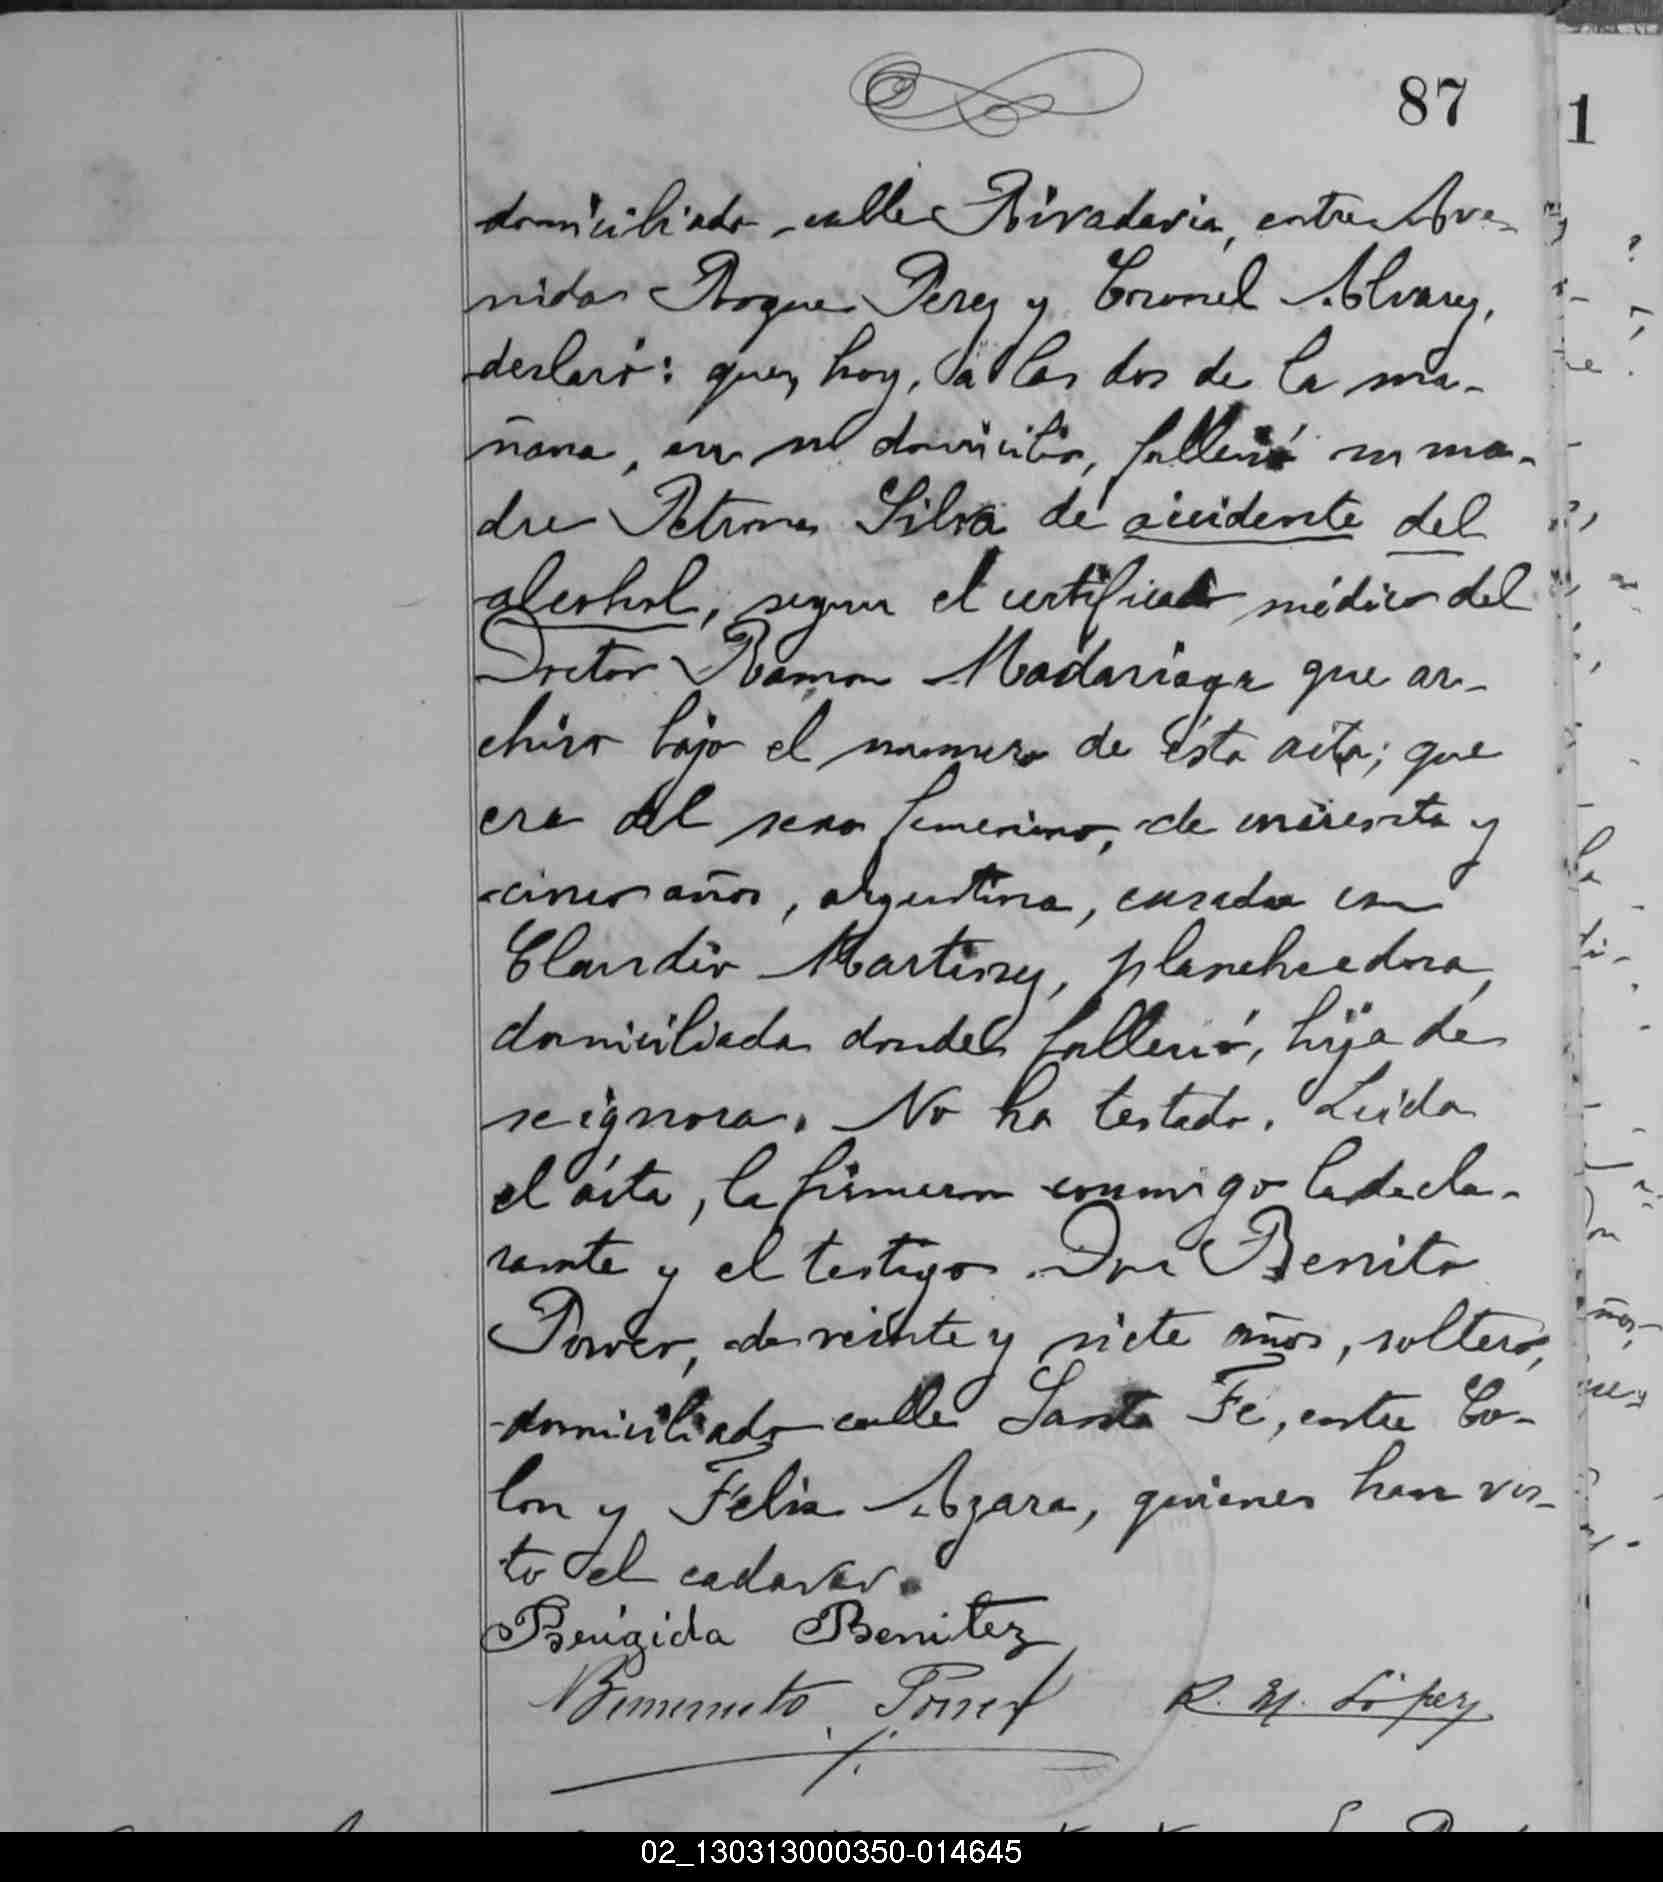 87
domiciliada calle Rivadavia, entre Ave-
nidas Roque Perez y Coronel Alvarez,
declaró: que, hoy, a las dos de la ma-
ñana, en su domicilio, falleció su ma-
dre Petrona Silva de accidente del
alcohol, segun el certificado médico del
Doctor Ramon Madariaga que ar-
chivo bajo el numero de ésta acta; que
era del sexo femenino, de cincuenta y
cinco años, argentina, casada con
Claudio Martinez, planchadora,
domiciliada donde falleció, hija de
se ignora. No ha testado. Leida
el acta, la firmaron conmigo la decla-
rante y el testigo Don Benito
Power, de veinte y siete años, soltero,
domiciliado calle Santa Fé, entre Co-
lon y Felix Azara, quienes han vis-
to el cadaver.
Brigida Benitez
R. M. López
1
02_130313000350-014645